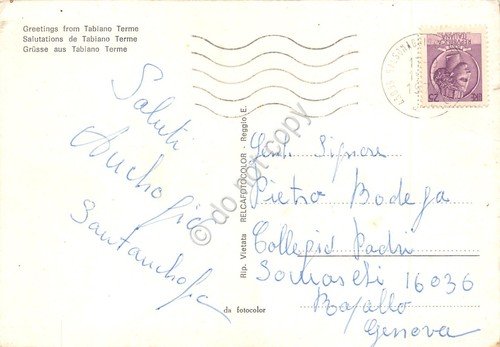 Greetings from Tabiano Terme
Salutations de Tabiano Terme
Grüsse aus Tabiano Terme
Saluti
Rip. Vietata RELCAFOTOCOLOR - Reggio E.
do not copy
Gent. Signore
Pietro Bodega
Collegio Padri
Somaschi 16036
Rapallo
Genova
da fotocolor